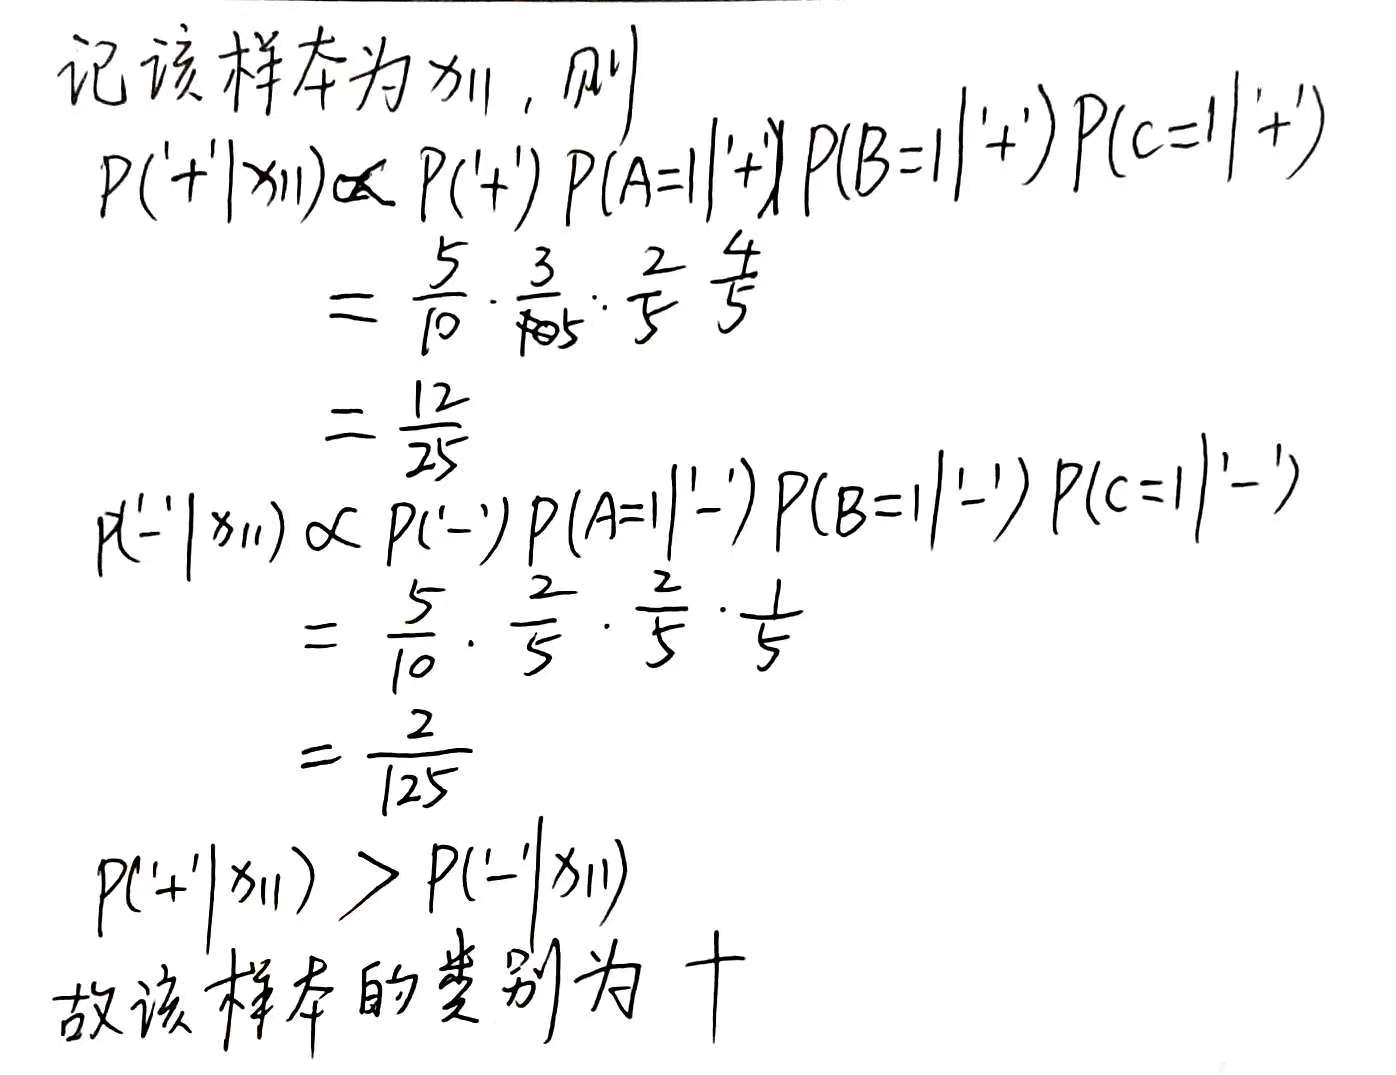 记该样本为x11,则
P('+'|x11)∝ P('+') P(A=1|'+') P(B=1|'+') P(C=1|'+')
= 5/10 · 3/5 · 2/5 4/5
= 12/25
P('-'|x11) ∝ P('-') P(A=1|'-') P(B=1|'-') P(C=1|'-')
= 5/10 · 2/5 · 2/5 · 1/5
= 2/125
P('+'|x11) > P('-'|x11)
故该样本的类别为 +